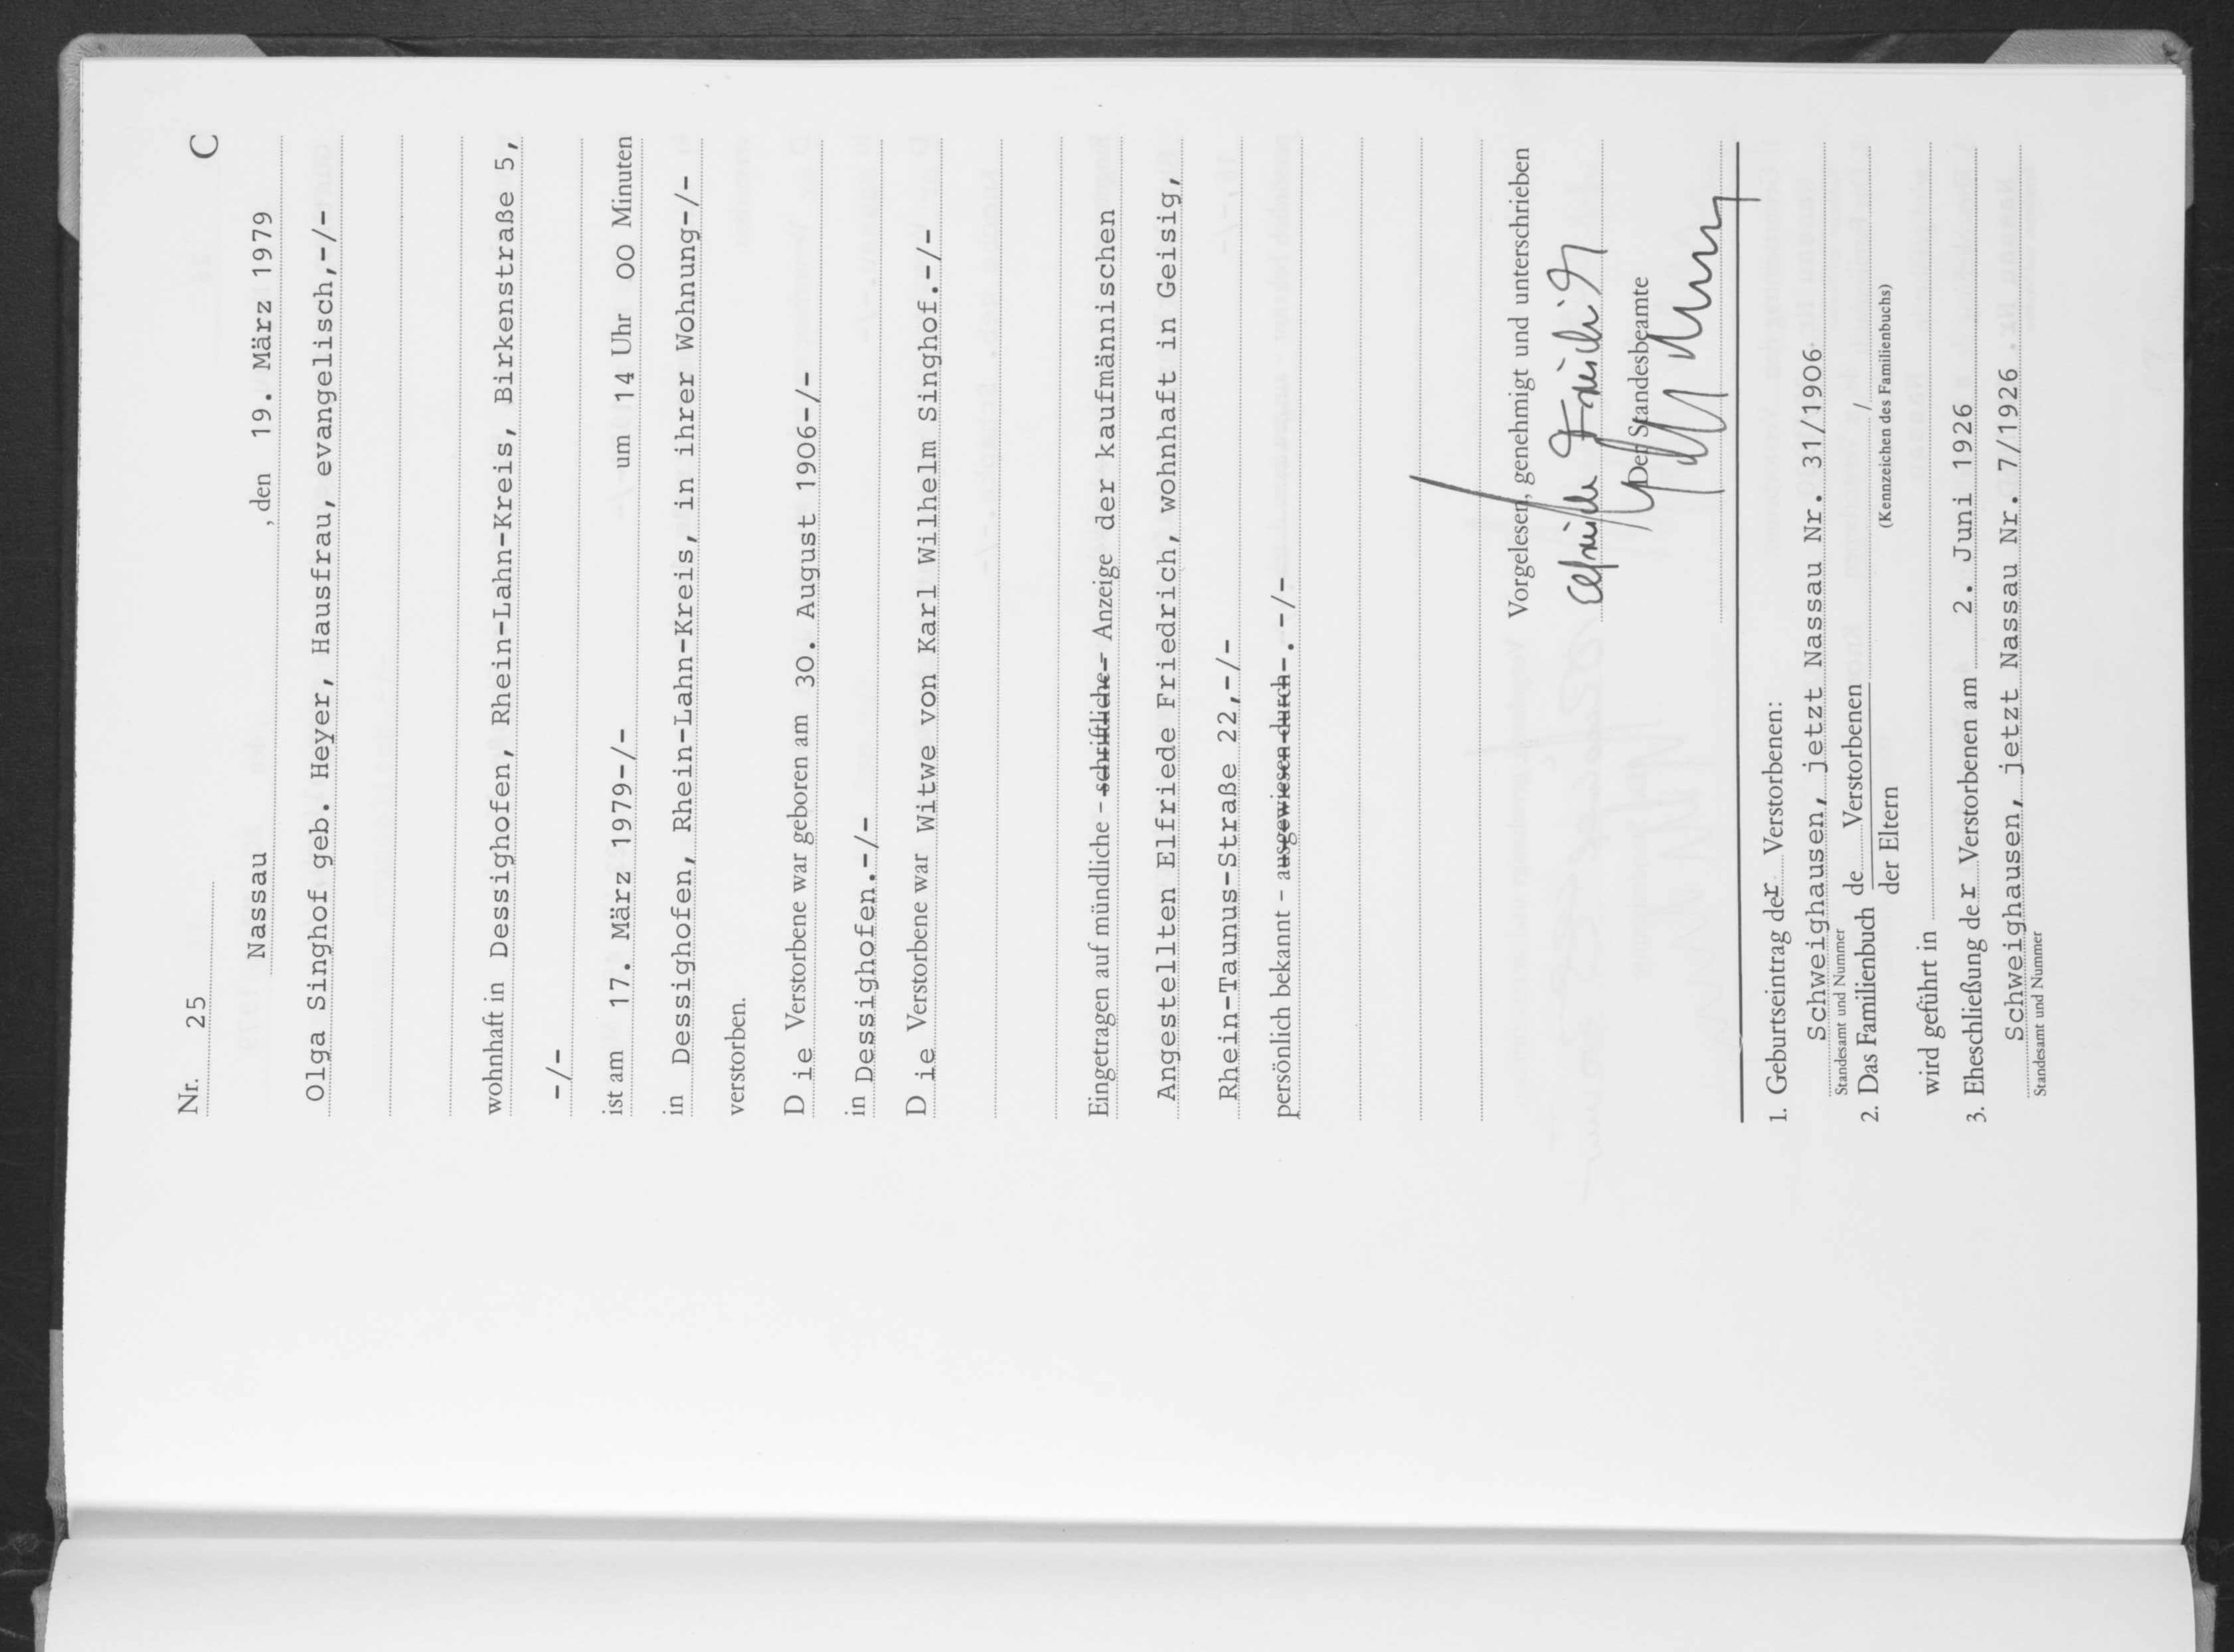 Nr. 25 C
Nassau , den 19. März 1979
Olga Singhof geb. Heyer, Hausfrau, evangelisch,-/-
wohnhaft in Dessighofen, Rhein-Lahn-Kreis, Birkenstraße 5,
-/-
ist am 17. März 1979-/- um 14 Uhr 00 Minuten
in Dessighofen, Rhein-Lahn-Kreis, in ihrer Wohnung-/-
verstorben.
D ie Verstorbene war geboren am 30. August 1906-/-
in Dessighofen.-/-
D ie Verstorbene war Witwe von Karl Wilhelm Singhof.-/-
Eingetragen auf mündliche - schriftliche- Anzeige der kaufmännischen
Angestellten Elfriede Friedrich, wohnhaft in Geisig,
Rhein-Taunus-Straße 22,-/-
persönlich bekannt - ausgewiesen durch-.-/-
Vorgelesen, genehmigt und unterschrieben
Elfriede Friedrich
Der Standesbeamte
1. Geburtseintrag der Verstorbenen:
Schweighausen, jetzt Nassau Nr. 31/1906
Standesamt und Nummer
2. Das Familienbuch de Verstorbenen /
der Eltern (Kennzeichen des Familienbuchs)
wird geführt in
3. Eheschließung der Verstorbenen am 2. Juni 1926
Schweighausen, jetzt Nassau Nr. 7/1926 .
Standesamt und Nummer